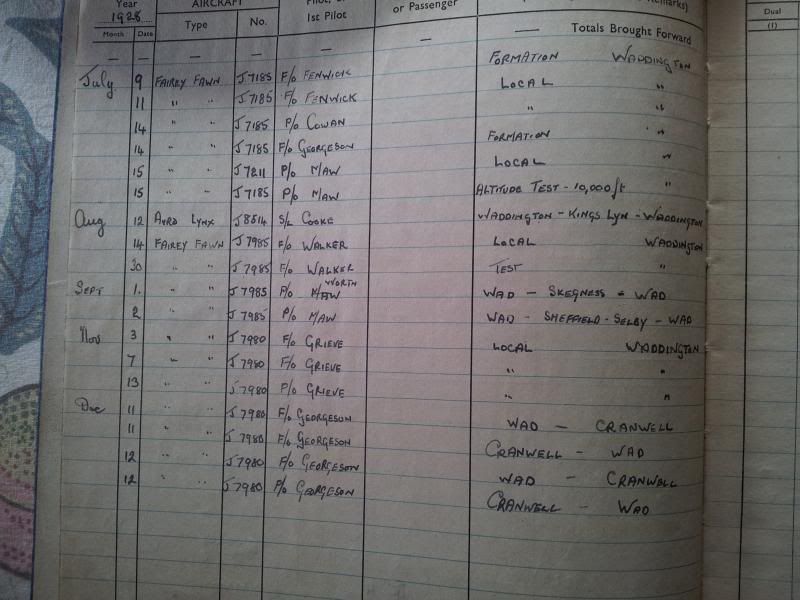 Year AIRCRAFT Pilot, or
1928 Type No. 1st Pilot or Passenger Remarks) Dual
Month Date (1)
— — — — — — — Totals Brought Forward
July 9 FAIREY FAWN J7185 F/o FENWICK FORMATION WADDINGTON
11 " " J7185 F/o FENWICK LOCAL "
14 " " J7185 P/o COWAN " "
14 " " J7185 F/o GEORGESON FORMATION "
15 " " J7211 P/o MAW LOCAL "
15 " " J7185 P/o MAW ALTITUDE TEST - 10,000 ft "
Aug 12 AVRO LYNX J8514 S/L COOKE WADDINGTON - KINGS LYN - WADDINGTON
14 FAIREY FAWN J7985 F/o WALKER LOCAL WADDINGTON
30 " " J7985 F/o WALKER TEST "
WORTH
SEPT 1. " " J7985 P/o MAW WAD - SKEGNESS - WAD
2 " " J7985 P/o MAW WAD - SHEFFIELD - SELBY - WAD
Nov 3 " " J7980 F/o GRIEVE LOCAL WADDINGTON
7 " " J7980 F/o GRIEVE " "
13 " " J7980 P/o GRIEVE " "
Dec 11 " " J7980 F/o GEORGESON WAD - CRANWELL
11 " " J7980 F/o GEORGESON CRANWELL - WAD
12 " " J7980 F/o GEORGESON WAD - CRANWELL
12 " " J7980 P/o GEORGESON CRANWELL - WAD